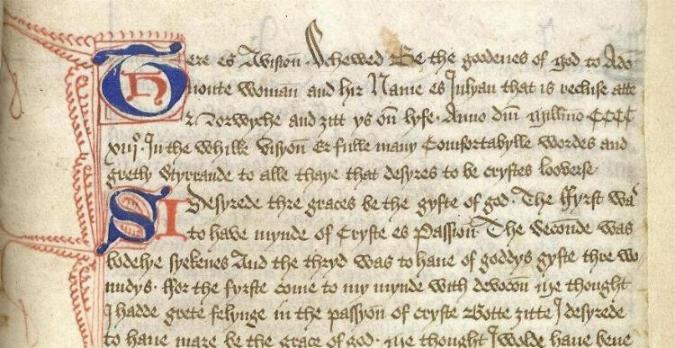 Here es A visioun Schewed Be the goodenes of god to Ade
uoute woman and hir Name es Julyan that is recluse atte
Norwyche and ȝitt ys oun lyfe. Anno dm̄ millmo CCCC
xiijo. In the whilk visyoun er fulle many Comfortabylle wordes and
gretly Styrrande to alle thaye that desyres to be crystes looverse
I Desyrede thre graces be the gyfte of god. The ffyrst was
to have mynde of Cryste es Passioun. The Secounde was
bodelye syekenes And the thryd was to haue of goddys gyfte thre wo
undys. ffor the fyrste come to my mynde with devocoun me thought
I hadde grete felynge in the passyon of cryste Botte ȝitte I desyrede
to haue mare be the grace of god. me thought I wolde haue bene